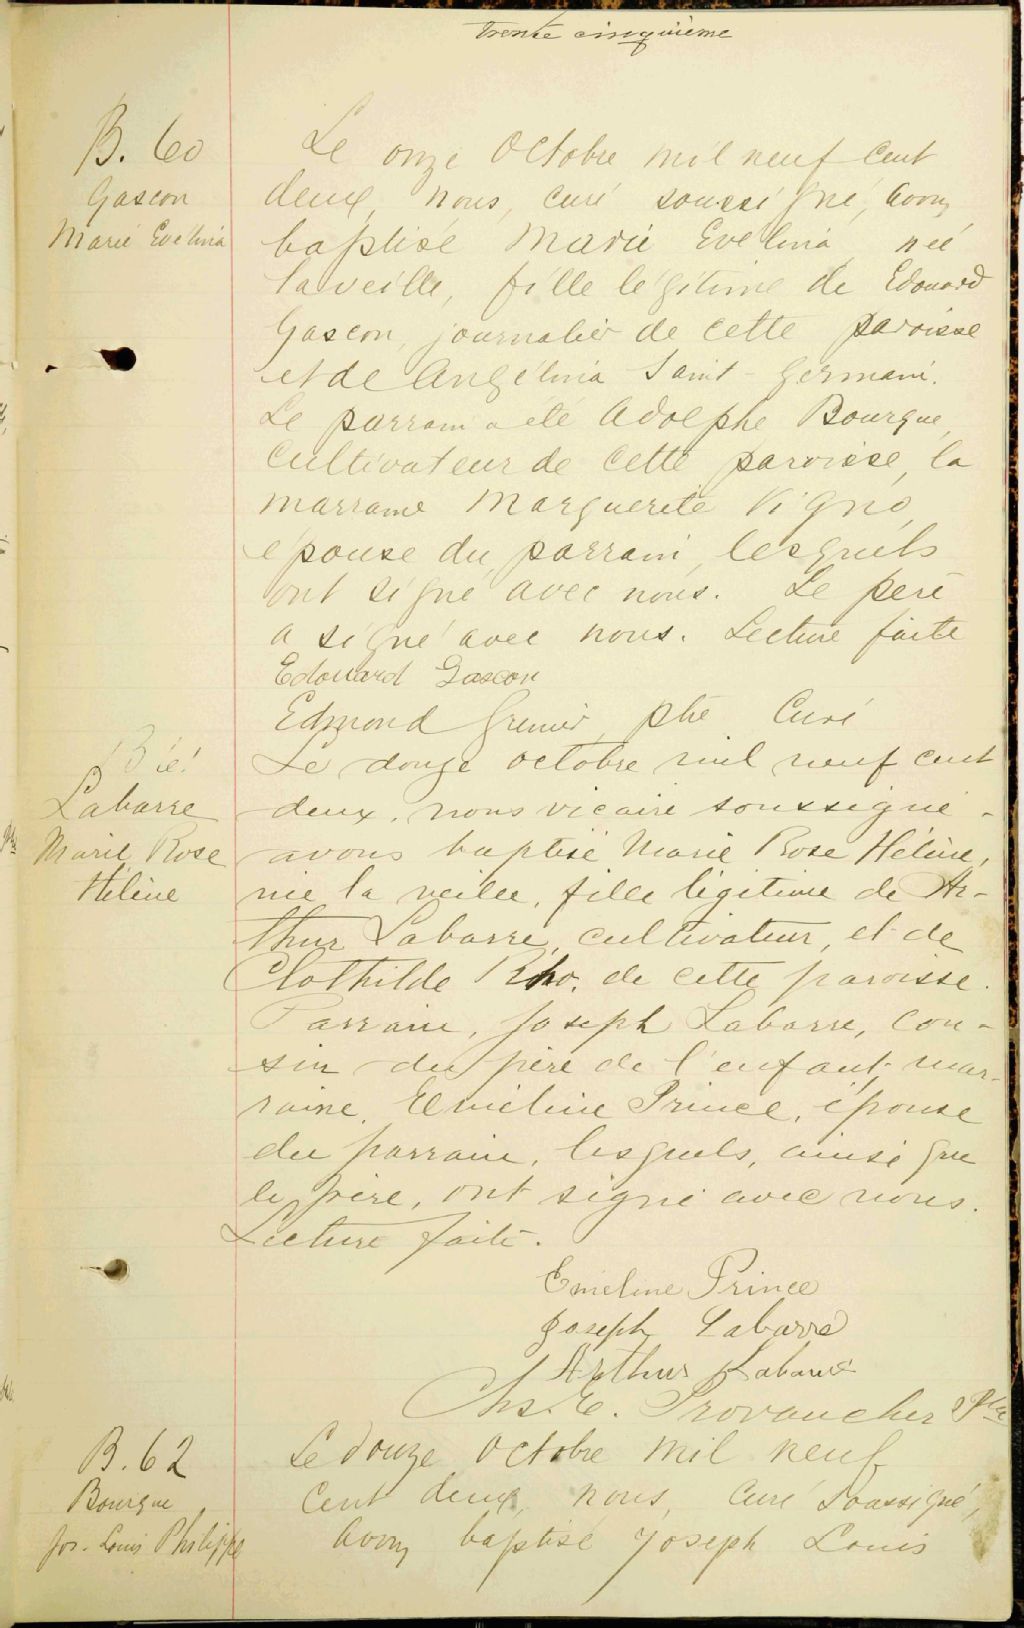 trente cinquième
B. 60
Gascon
Marie Evelina
Le onze Octobre mil neuf cent
deux, nous, curé soussigné, avons
baptisé Marie Evelina née
la veille, fille légitime de Edouard
Gascon, journalier de cette paroisse
et de Angélina Saint-Germain.
Le parrain a été Adolphe Bourque,
cultivateur de cette paroisse, la
marraine Marguerite Vigno,
épouse du parrain, lesquels
ont signé avec nous. Le père
a signé avec nous. Lecture faite
Edouard Gascon
Edmond Grenier, ptre Curé
B. 61
Labarre
Marie Rose
Hélène
Le douze octobre mil neuf cent
deux, nous vicaire soussigné
avons baptisé Marie Rose Hélène,
née la veille, fille légitime de Ar-
thur Labarre, cultivateur, et de
Clothilde Rho, de cette paroisse.
Parrain, Joseph Labarre, cou-
sin du père de l'enfant, mar-
raine, Emeline Prince, épouse
du parrain, lesquels, ainsi que
le père, ont signé avec nous.
Lecture faite.
Emeline Prince
Joseph Labarre
Arthur Labarre
Chs. E. Provancher Ptre
B. 62
Bourque
Jos. Louis Philippe
Le douze Octobre mil neuf
cent deux, nous, curé soussigné,
avons baptisé Joseph Louis